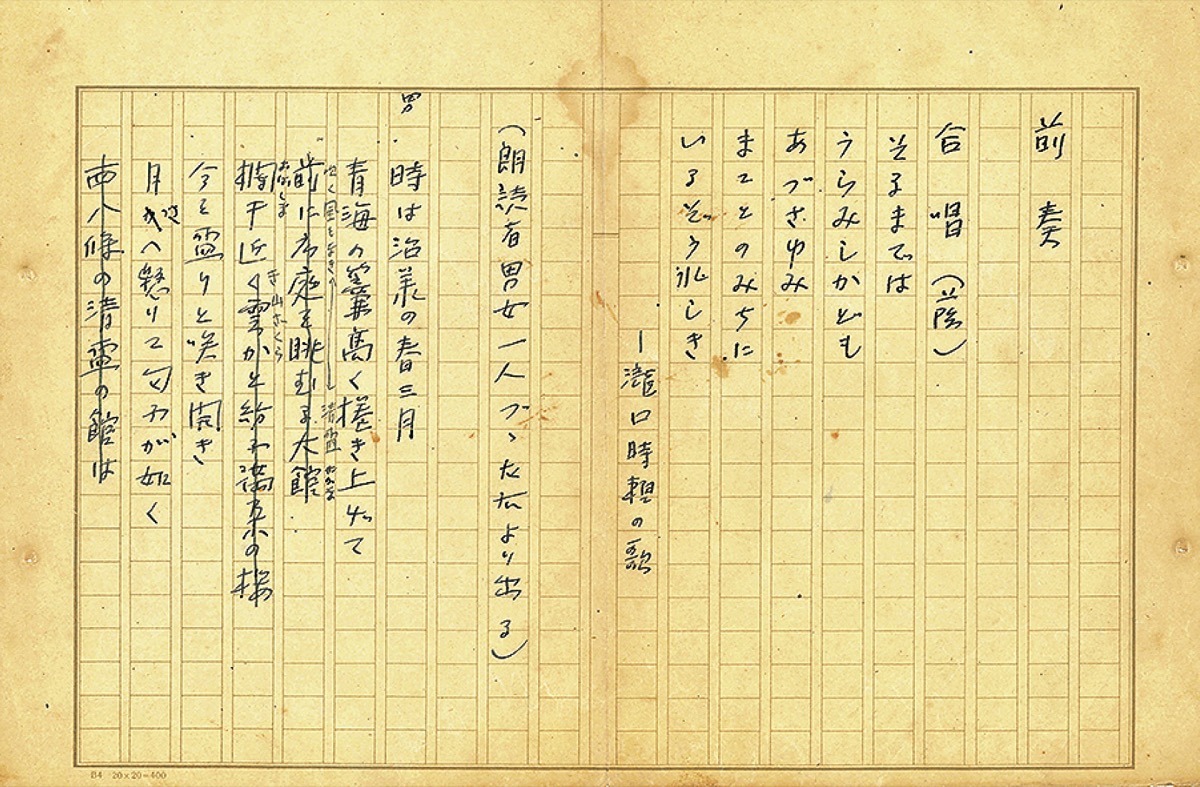 前奏
合唱（蔭）
そるまでは
うらみしかども
あづさゆみ
まことのみちに
いるぞうれしき
ー滝口時頼の歌
（朗読者男女一人づゝ左右より出る）
男
時は治承の春三月
青海の簾高く捲き上げて
前に広庭を眺むる大館
おばしま
欄干近く雲かと紛ふ満朶の桜
今を盛りと咲き開き
月さへ懸りて匂ふが如く
西八條の清盛の館は
B4 20×20=400